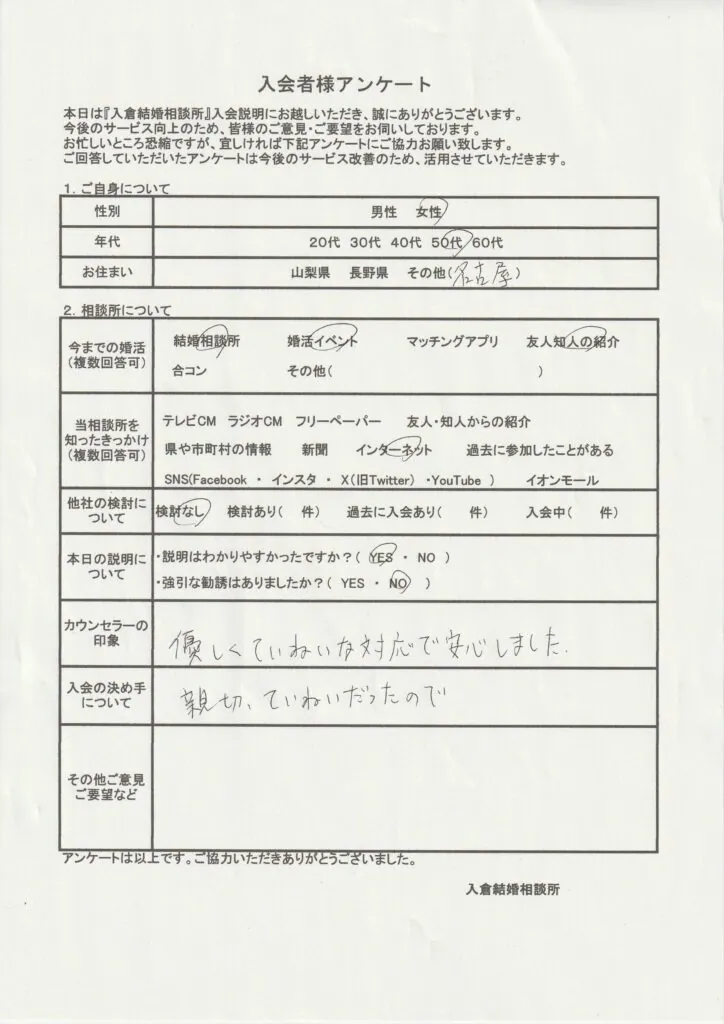 入会者様アンケート
本日は『入倉結婚相談所』入会説明にお越しいただき、誠にありがとうございます。
今後のサービス向上のため、皆様のご意見・ご要望をお伺いしております。
お忙しいところ恐縮ですが、宜しければ下記アンケートにご協力お願い致します。
ご回答していただいたアンケートは今後のサービス改善のため、活用させていただきます。
1. ご自身について
性別 男性 女性
年代 20代 30代 40代 50代 60代
お住まい 山梨県 長野県 その他(名古屋)
2. 相談所について
今までの婚活 結婚相談所 婚活イベント マッチングアプリ 友人知人の紹介
(複数回答可) 合コン その他( )
当相談所を テレビCM ラジオCM フリーペーパー 友人・知人からの紹介
知ったきっかけ 県や市町村の情報 新聞 インターネット 過去に参加したことがある
(複数回答可) SNS(Facebook ・ インスタ ・ X(旧Twitter) ・YouTube ) イオンモール
他社の検討に
ついて 検討なし 検討あり( 件) 過去に入会あり( 件) 入会中( 件)
本日の説明に ・説明はわかりやすかったですか?( YES ・ NO )
ついて ・強引な勧誘はありましたか?( YES ・ NO )
カウンセラーの
印象 優しくていねいな対応で安心しました.
入会の決め手
について 親切、ていねいだったので
その他ご意見
ご要望など
アンケートは以上です。ご協力いただきありがとうございました。
入倉結婚相談所